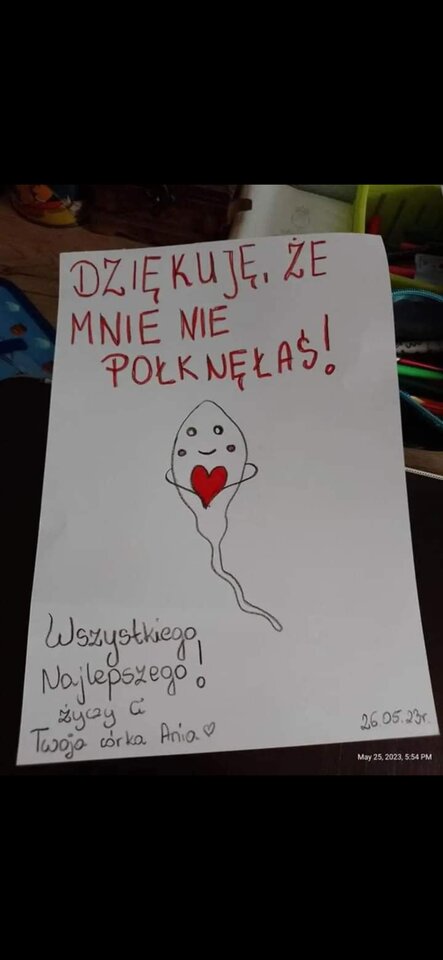 DZIĘKUJĘ, ŻE
MNIE NIE
POŁKNĘŁAŚ!
Wszystkiego
Najlepszego!
życzy Ci
Twoja córka Ania ♡
26.05.23r.
May 25, 2023, 5:54 PM